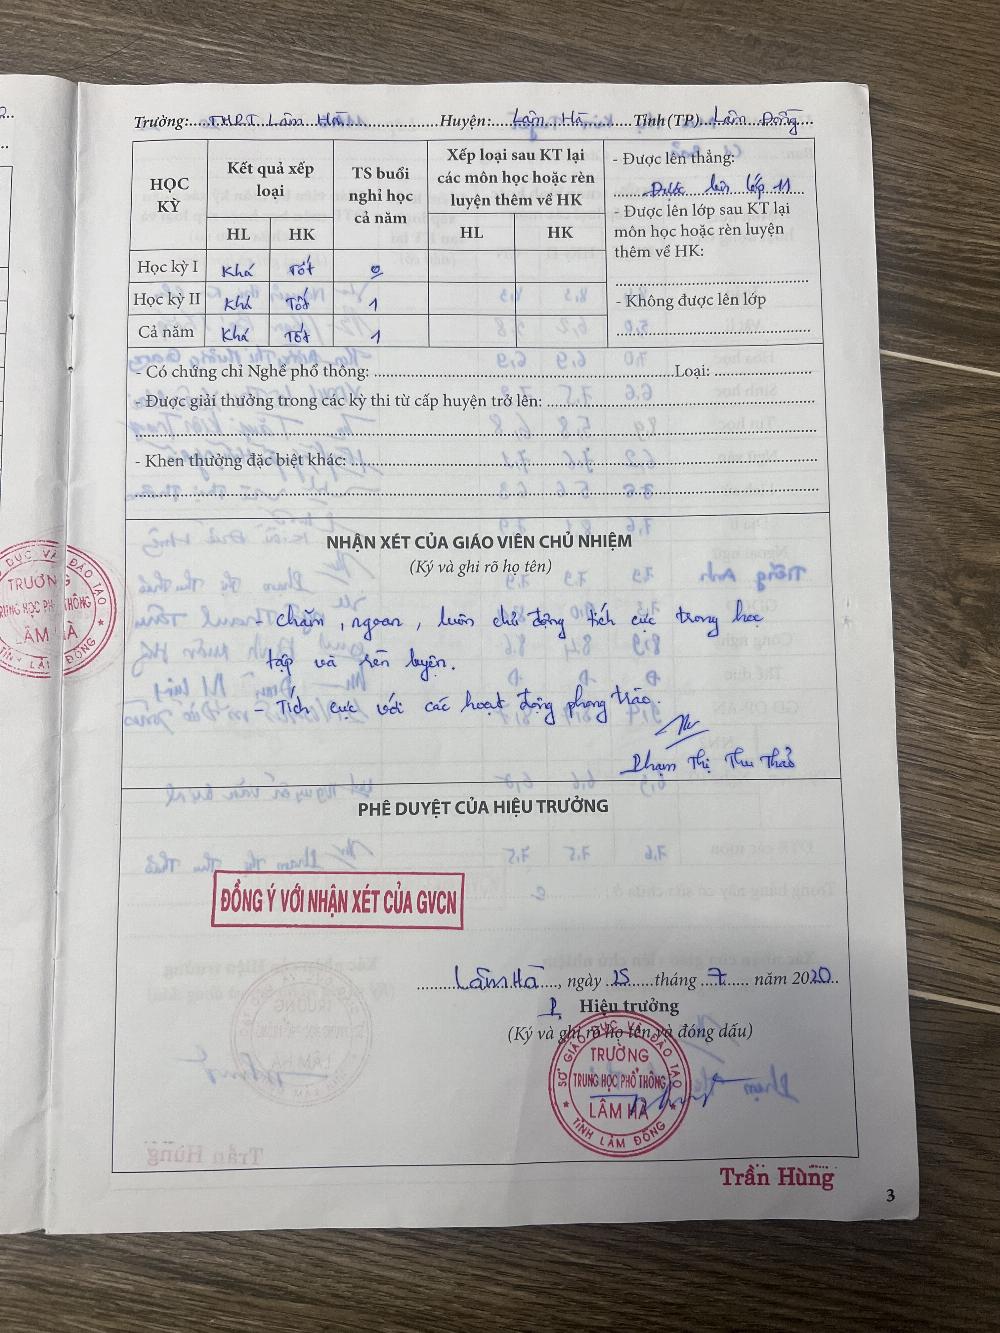 Trường: THPT Lâm Hà Huyện: Lâm Hà Tỉnh (TP) Lâm Đồng
HỌC KỲ
Kết quả xếp loại
HL HK
TS buổi nghỉ học cả năm
Xếp loại sau KT lại các môn học hoặc rèn luyện thêm về HK
HL HK
- Được lên thẳng:
Được lên lớp 11
- Được lên lớp sau KT lại
môn học hoặc rèn luyện
thêm về HK:
- Không được lên lớp
Học kỳ I Khá Tốt 0
Học kỳ II Khá Tốt 1
Cả năm Khá Tốt 1
- Có chứng chỉ Nghề phổ thông: Loại:
- Được giải thưởng trong các kỳ thi từ cấp huyện trở lên:
- Khen thưởng đặc biệt khác:
NHẬN XÉT CỦA GIÁO VIÊN CHỦ NHIỆM
(Ký và ghi rõ họ tên)
- Chăm, ngoan, luôn chủ động tích cực trong học
tập và rèn luyện.
- Tích cực với các hoạt động phong trào.
Phạm Thị Thu Thảo
PHÊ DUYỆT CỦA HIỆU TRƯỞNG
ĐỒNG Ý VỚI NHẬN XÉT CỦA GVCN
Lâm Hà, ngày 25 tháng 7 năm 2020
Hiệu trưởng
(Ký và ghi rõ họ tên và đóng dấu)
SỞ GIÁO DỤC VÀ ĐÀO TẠO
TRƯỜNG
TRUNG HỌC PHỔ THÔNG
LÂM HÀ
TỈNH LÂM ĐỒNG
Trần Hùng
3